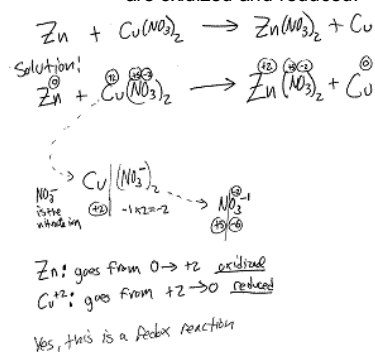 are oxidized and reduced.
Zn + Cu(NO₃)₂ → Zn(NO₃)₂ + Cu
Solution:
0 +2 +5 -2 +2 +5 -2 0
Zn + Cu(NO₃)₂ → Zn(NO₃)₂ + Cu
Cu | (NO₃⁻)₂
+2 -1x2=-2
NO₃⁻
is the
nitrate ion
-2
NO₃⁻¹
+5 -6
Zn: goes from 0 → +2 oxidized
Cu⁺²: goes from +2 → 0 reduced
Yes, this is a redox reaction